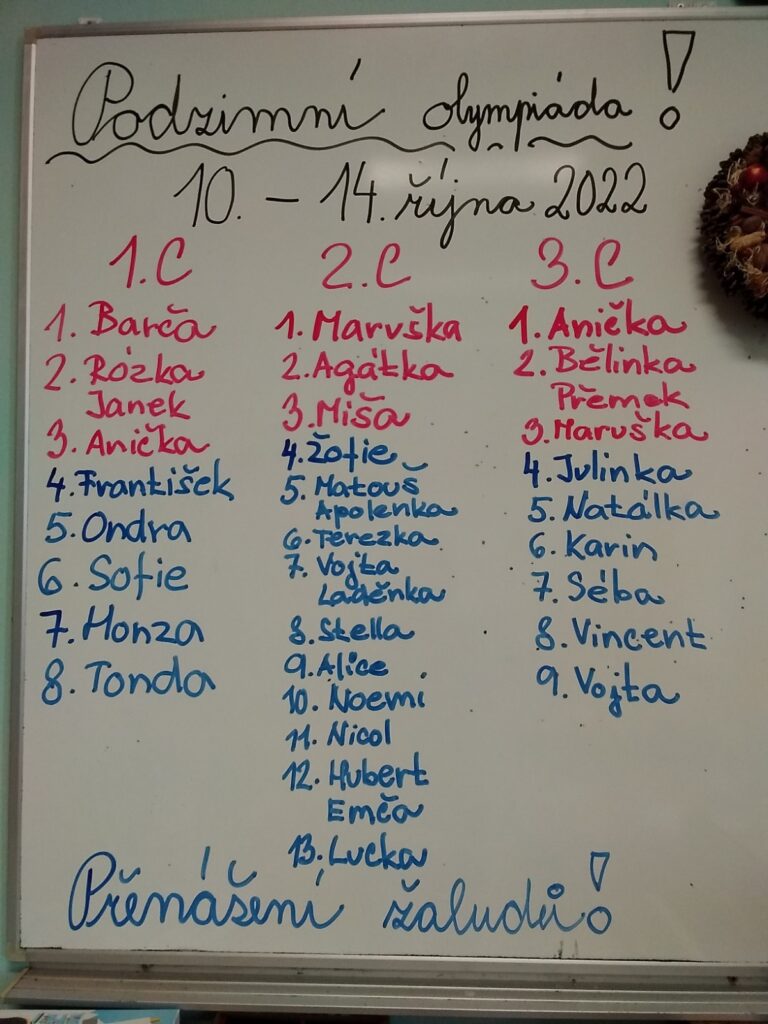 Podzimní olympiáda!
10. – 14. října 2022
1.C
1. Barča
2. Rózka
Janek
3. Anička
4. František
5. Ondra
6. Sofie
7. Honza
8. Tonda
2.C
1. Maruška
2. Agátka
3. Míša
4. Žofie
5. Matouš
Apolenka
6. Terezka
7. Vojta
Laděnka
8. Stella
9. Alice
10. Noemi
11. Nicol
12. Hubert
Emča
13. Lucka
3.C
1. Anička
2. Bělinka
Přemek
3. Maruška
4. Julinka
5. Natálka
6. Karin
7. Séba
8. Vincent
9. Vojta
Přenášení žaludů!